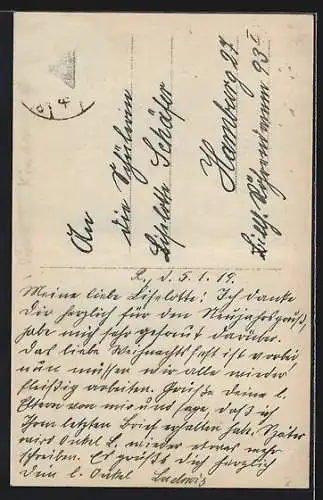 An
die Schülerin
Liselotte Schäfer
Hamburg 27
Bill. Röhrendamm 93 I
R., d. 5.1.19.
Meine liebe Liselotte! Ich danke
Dir herzlich für den Neujahrsgruß,
habe mich sehr gefreut darüber.
Das liebe Weihnachtsfest ist vorbei
nun müssen wir alle wieder
fleißig arbeiten. Grüße deine l.
Eltern von mir und sage, daß ich
Ihren letzten Brief erhalten habe. Später
wird Onkel L. wieder etwas mehr
schreiben. Es grüßt dich herzlich
dein l. Onkel Ludwig